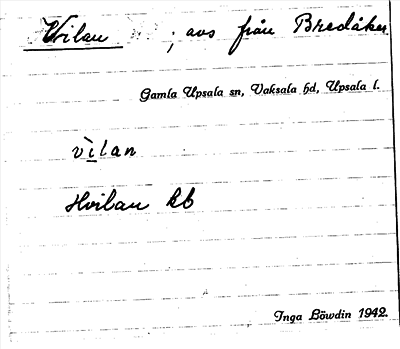 Vilan ; avs från Bredåker
Gamla Upsala sn, Vaksala hd, Upsala l.
vìlan
Hvilan kb
Inga Löwdin 1942.